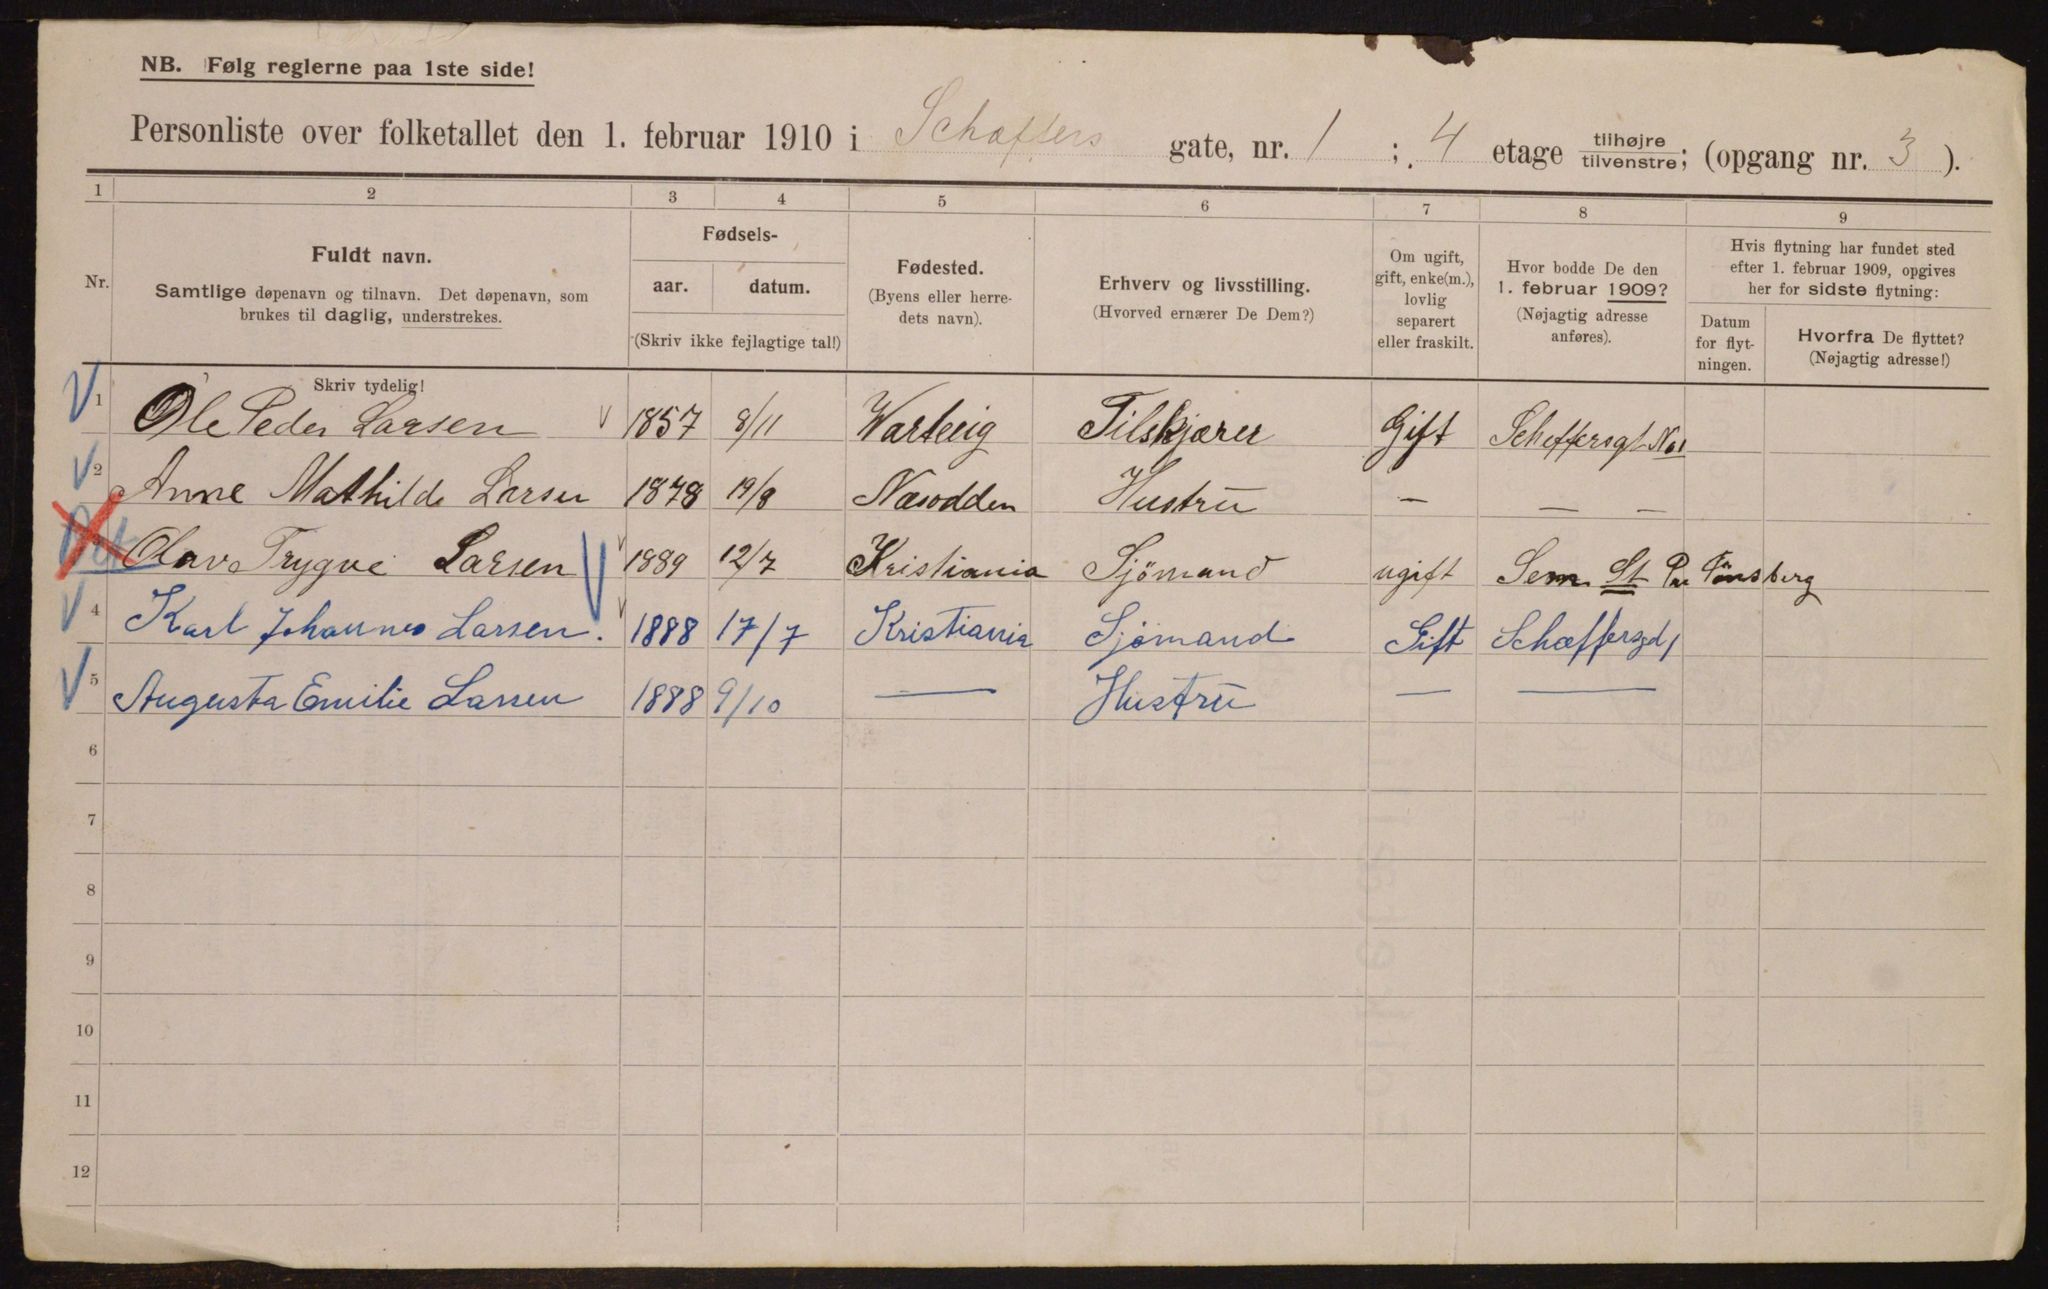 NB. Følg reglerne paa 1ste side!
Personliste over folketallet den 1. februar 1910 i Schæffers gate, nr. 1 ; 4 etage tilhøjre tilvenstre; (opgang nr. 3 ).
1 2 3 4 5 6 7 8 9
Nr.
Fuldt navn.
Samtlige døpenavn og tilnavn. Det døpenavn, som
brukes til daglig, understrekes.
Skriv tydelig!
Fødsels-
aar. datum.
(Skriv ikke fejlagtige tal!)
Fødested.
(Byens eller herre-
dets navn).
Erhverv og livsstilling.
(Hvorved ernærer De Dem?)
Om ugift,
gift, enke(m.),
lovlig
separert
eller fraskilt.
Hvor bodde De den
1. februar 1909?
(Nøjagtig adresse
anføres).
Hvis flytning har fundet sted
efter 1. februar 1909, opgives
her for sidste flytning:
Datum
for flyt-
ningen.
Hvorfra De flyttet?
(Nøjagtig adresse!)
1 Ole Peder Larsen 1857 8/11 Varteig Tilskjærer Gift Scheffersgt No1
2 Anne Mathilde Larsen 1878 19/8 Næsodden Hustru — — —
3 Olav Trygve Larsen 1889 12/7 Kristiania Sjömand ugift Sem St Pr Tönsberg
4 Karl Johannes Larsen. 1888 17/7 Kristiania Sjömand Gift Schæffersgd 1
5 Augusta Emilie Larsen 1888 9/10 — Hustru — —
6
7
8
9
10
11
12